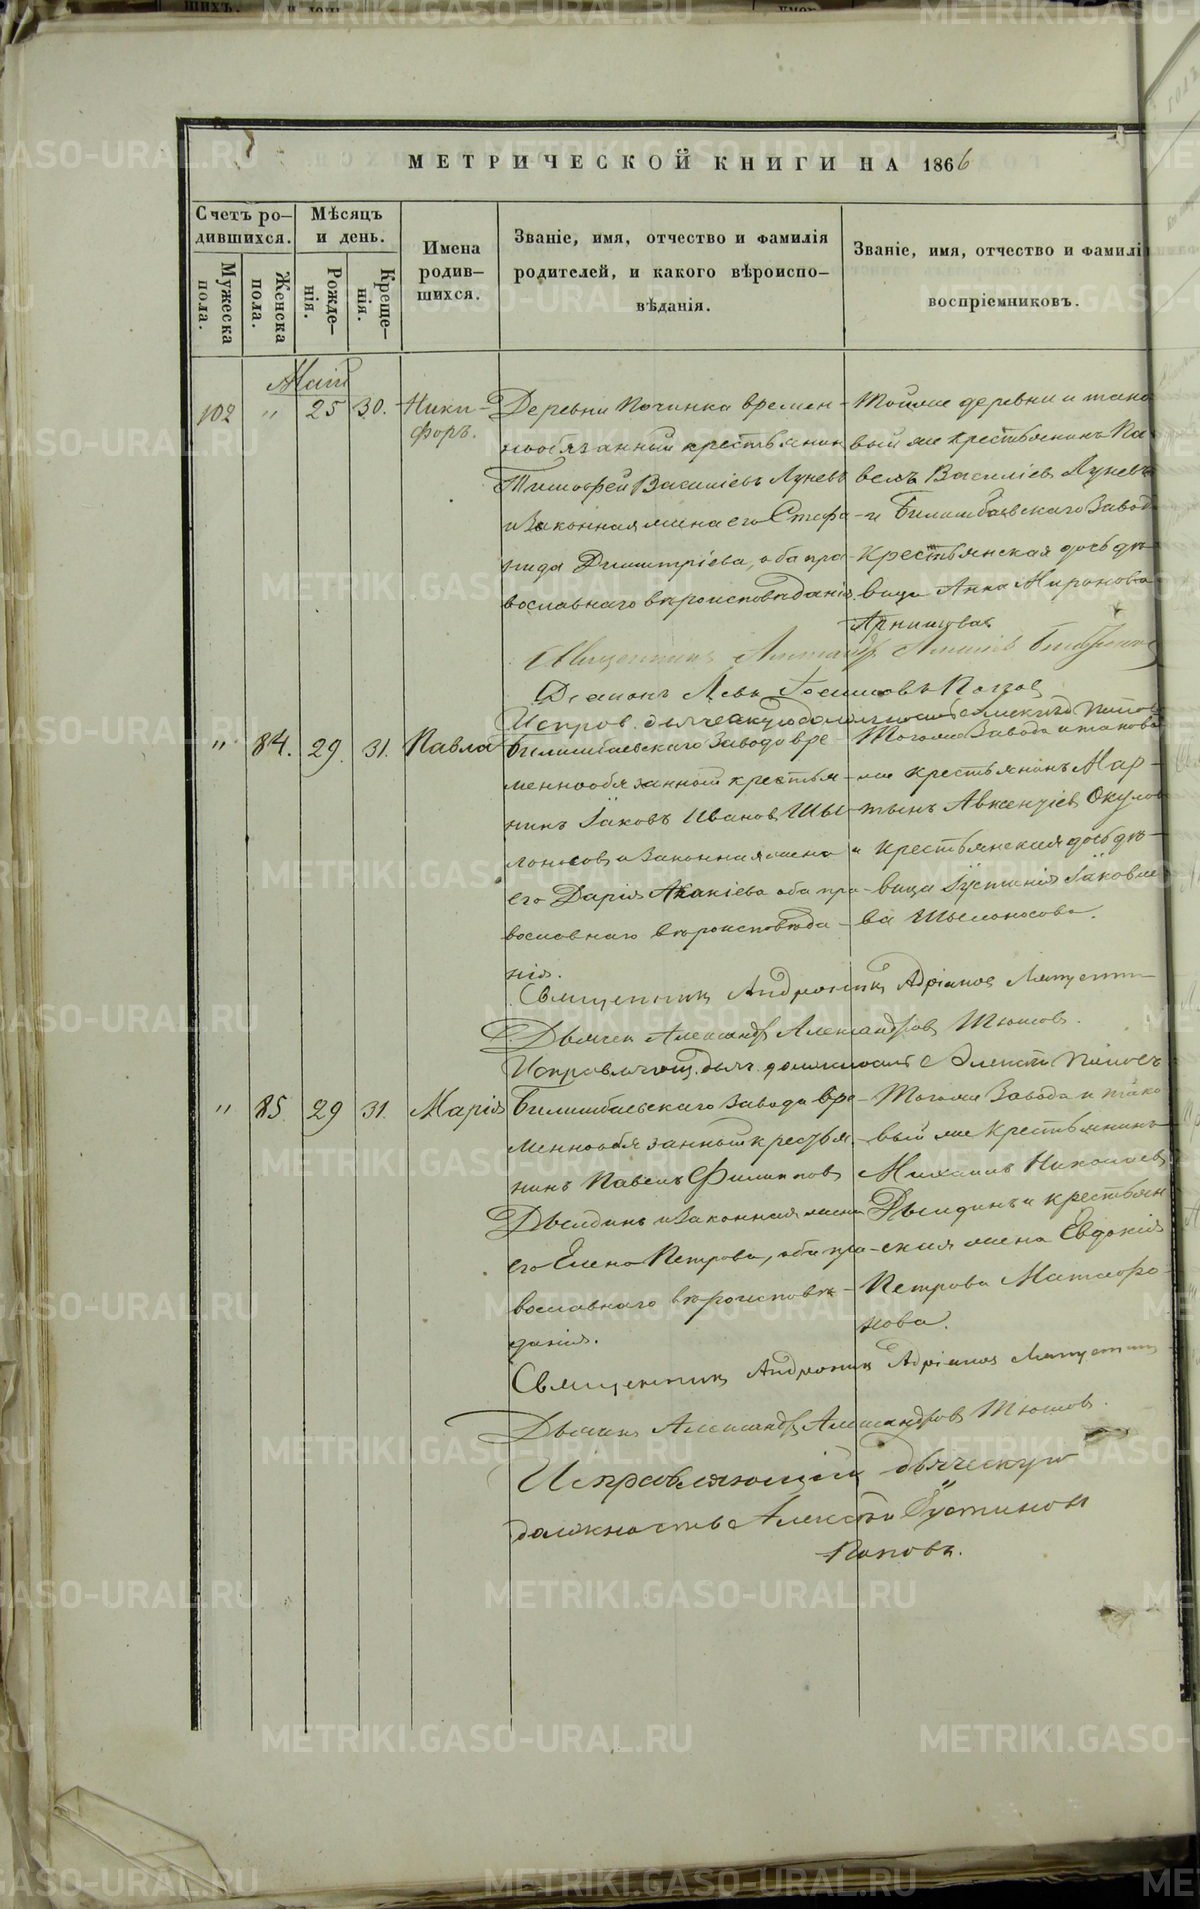 МЕТРИЧЕСКОЙ КНИГИ НА 1866
Счетъ ро–
дившихся.
Мѣсяцъ
и день.
Имена
родив–
шихся.
Званіе, имя, отчество и фамилія
родителей, и какого вѣроиспо–
вѣданія.
Званіе, имя, отчество и фамилі
воспріемниковъ.
Мужеска
пола.
Женска
пола.
Рожде–
нія.
Креще–
нія.
Май
102 " 25 30. Ники–
форъ.
Деревни Починка времен–
нообязанный крестьянин
Тимофей Васильевъ Луневъ
и Законная жена его Стефа–
нида Димитріева, оба пра–
вославнаго вѣроисповѣданія.
Тойже деревни и тако
вый же крестьянинъ Па–
велъ Василіевъ Луневъ
и Билимбаевскаго Завода
крестьянская дочь дѣ–
вица Анна Миронова
Священникъ
Діаконъ Левъ
" 84. 29. 31. Павла
Билимбаевскаго Завода вре–
меннообязанный крестья–
нинъ Іаковъ Иванов Шы–
лоносовъ и Законная жена
его Дарія Акакіева оба пра–
вославнаго вѣроисповѣда–
нія.
Тогоже Завода и таково
же крестьянинъ Мар–
тынъ Авксентіев Окулов
и крестьянская дочь дѣ–
вица Іустинія Іаковле
ва Шылоносова.
Священникъ Андроникъ Адріанов Ляпустин
Дьячек Александръ Александров Тюшов.
Исправляющ. дьяч. должность Алексѣй Поповъ
" 85. 29 31. Марія
Билимбаевскаго Завода вре–
меннообязанный крестья–
нинъ Павелъ Филиппов
Дылдинъ и Законная жена
его Елена Петрова, оба пра–
вославнаго вѣроисповѣ–
данія.
Тогоже Завода и тако
вый же крестьянинъ
Михаилъ Николаев
Дылдинъ и крестьян
ская жена Евдокія
Петрова Матафо–
нова.
Священникъ Андроникъ Адріанов Ляпустин
Дьячекъ Александръ Александров Тюшов.
Исправляющій дьяческую
должность Алексѣй Іустинов
Поповъ.
METRIKI.GASO-URAL.RU